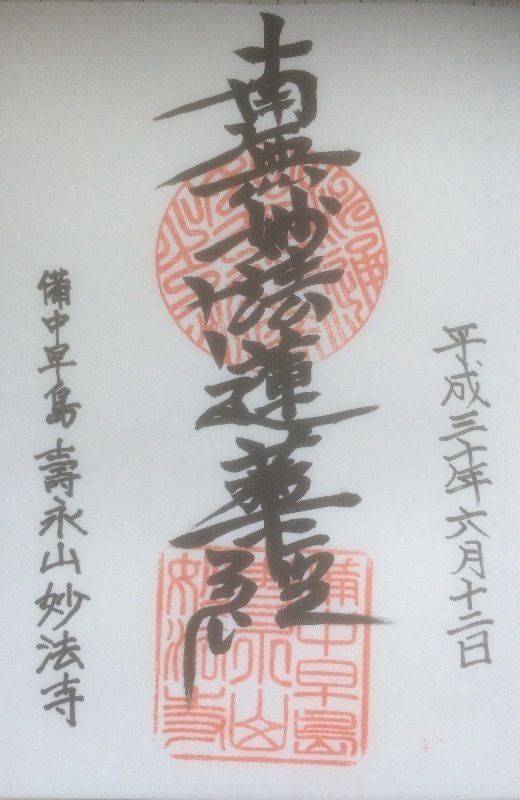 平成三十年六月十二日
南無妙法蓮華経
備中早島 壽永山妙法寺
備中早島
壽永山
妙法寺